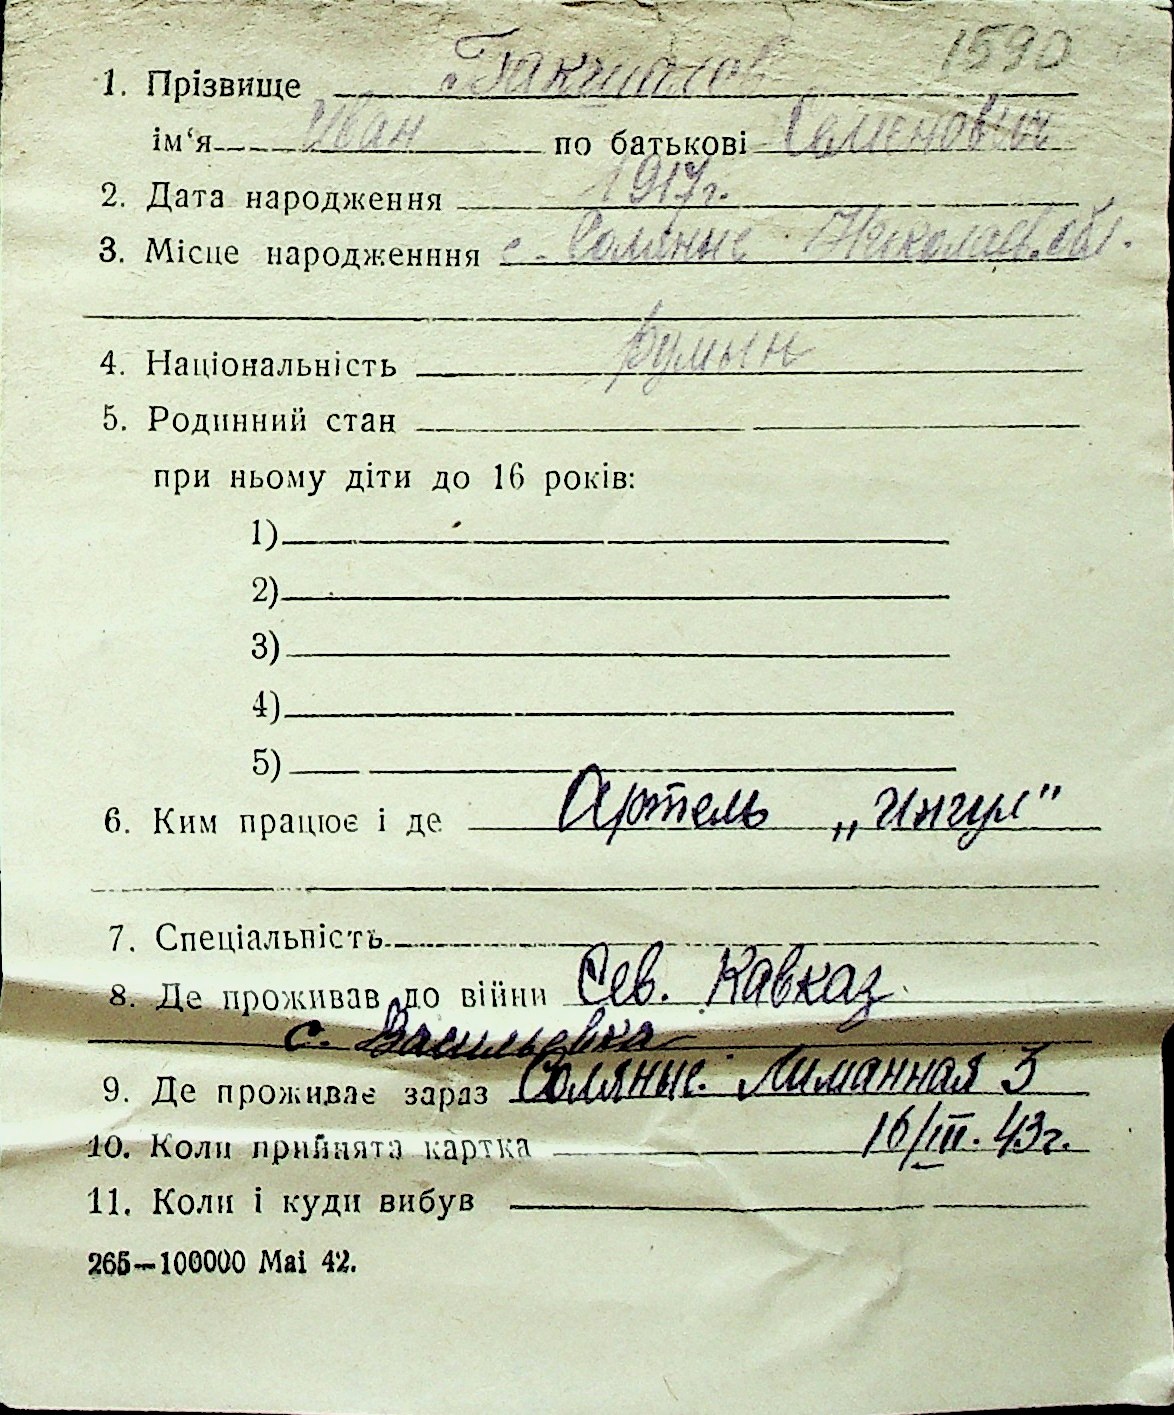 1590
1. Прізвище
ім‘я Иван по батькові Семенович
2. Дата народження 1917г.
3. Місце народженння с. Соляные Николаев. обл.
4. Національність румын
5. Родинний стан
при ньому діти до 16 років:
1)
2)
3)
4)
5)
6. Ким працює і де Артель „Ингул"
7. Спеціальність
8. Де проживав до війни Сев. Кавказ
с. Васильевка
9. Де проживає зараз Соляные Лиманная 3
10. Коли прийнята картка 16/III. 43г.
11. Коли і куди вибув
265—100000 Mai 42.